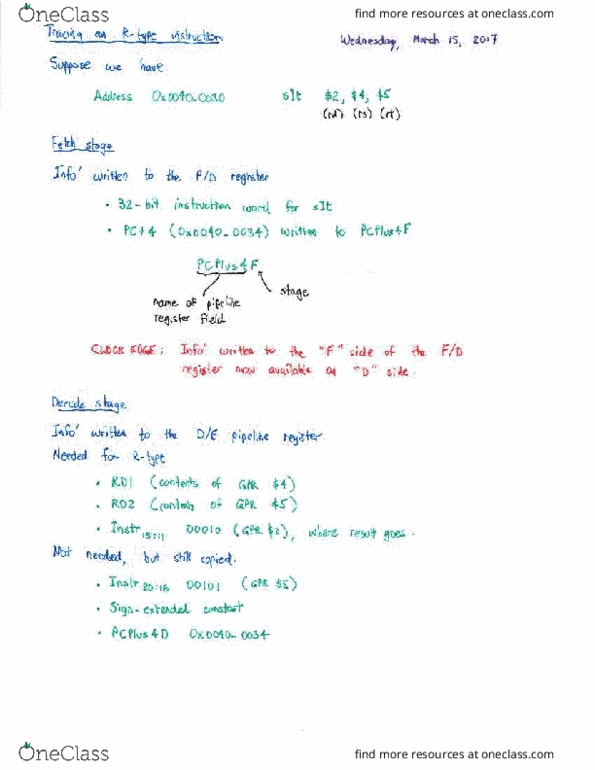 OneClass
find more resources at oneclass.com
Tracing an R-type instruction
Wednesday, March 15, 2017
Suppose we have
Address 0x0040_0030 slt $2, $4, $5
(rd) (rs) (rt)
Fetch stage
Info' written to the F/D register
• 32-bit instruction word for slt
• PC+4 (0x0040_0034) written to PCPlus4F
PCPlus4F
name of pipeline
register field
stage
CLOCK EDGE: Info' written to the "F" side of the F/D
register now available on "D" side.
Decode stage
Info' written to the D/E pipeline register
Needed for R-type
• RD1 (contents of GPR $4)
• RD2 (contents of GPR $5)
• Instr15:11 00010 (GPR $2), where result goes.
Not needed, but still copied.
• Instr20:16 00101 (GPR $5)
• Sign-extended constant
• PCPlus4D 0x0040_0034
OneClass
find more resources at oneclass.com